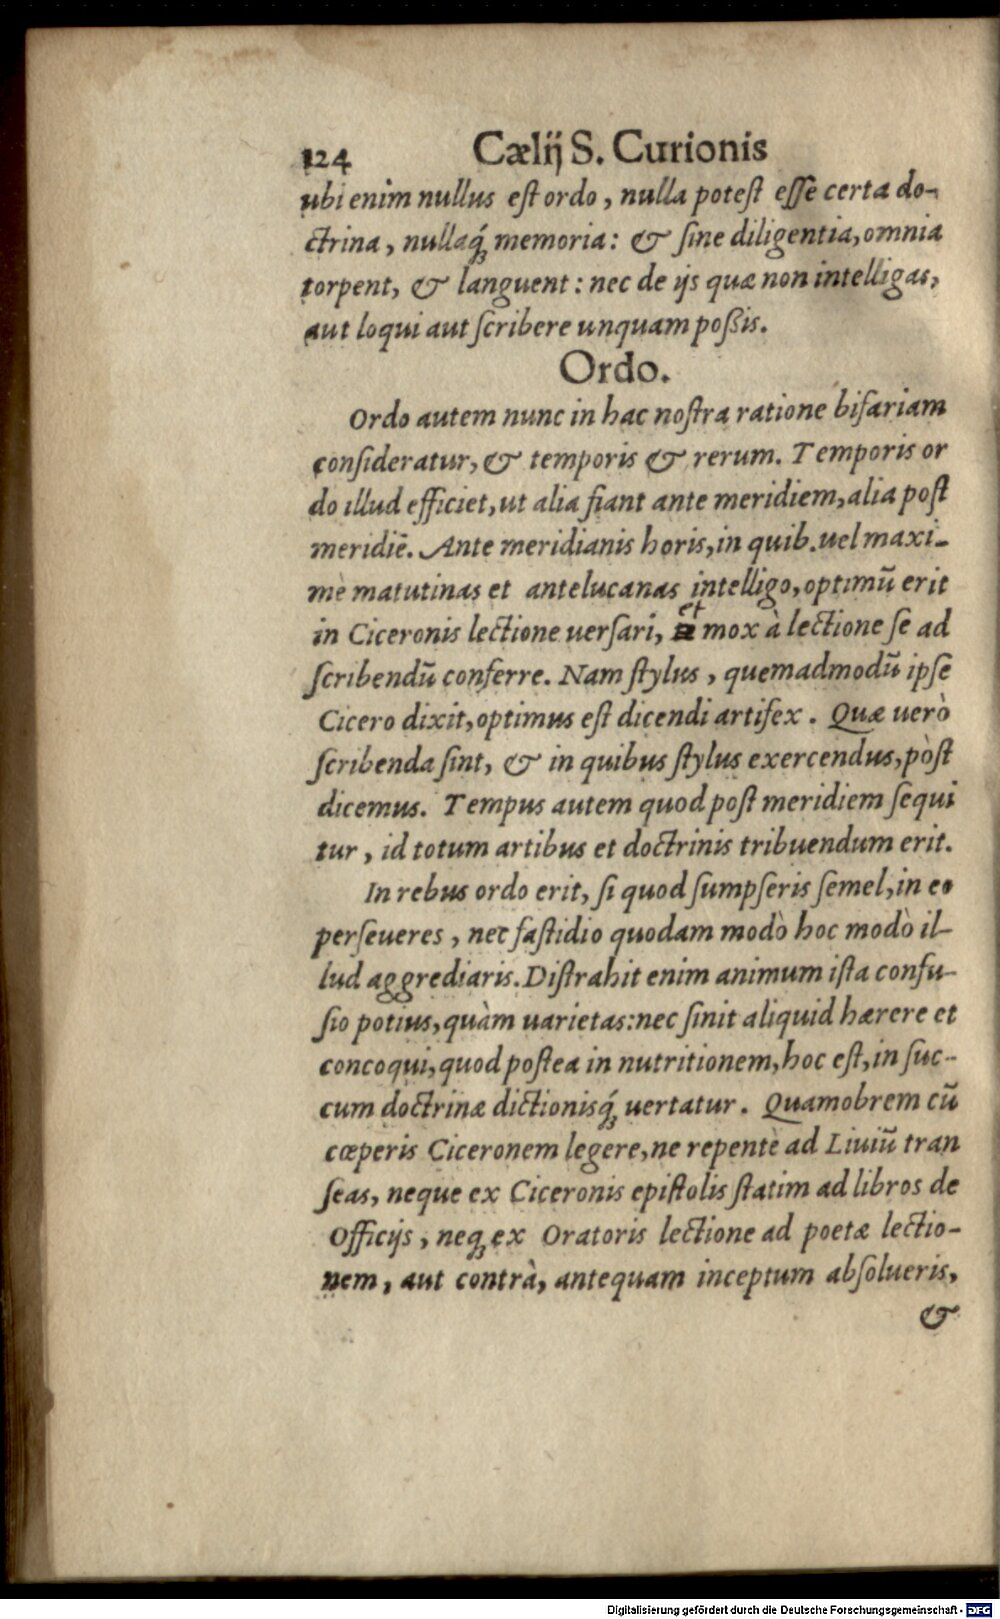 124 Cælij S. Curionis
ubi enim nullus eſt ordo, nulla poteſt eſſe certa do-
ctrina, nullaq́ꝫ memoria: & ſine diligentia, omnia
torpent, & languent: nec de ijs quæ non intelligas,
aut loqui aut ſcribere unquam poßis.
Ordo.
Ordo autem nunc in hac noſtra ratione bifariam
conſideratur, & temporis & rerum. Temporis or
do illud efficiet, ut alia fiant ante meridiem, alia poſt
meridiē. Ante meridianis horis, in quib. uel maxi-
mè matutinas et antelucanas intelligo, optimū erit
in Ciceronis lectione uerſari, et mox à lectione ſe ad
ſcribendū conferre. Nam ſtylus, quemadmodū ipſe
Cicero dixit, optimus eſt dicendi artifex. Quæ uerò
ſcribenda ſint, & in quibus ſtylus exercendus, pòſt
dicemus. Tempus autem quod poſt meridiem ſequi
tur, id totum artibus et doctrinis tribuendum erit.
In rebus ordo erit, ſi quod ſumpſeris ſemel, in eo
perſeueres, nec faſtidio quodam modò hoc modò il-
lud aggrediaris. Diſtrahit enim animum iſta confu-
ſio potius, quàm uarietas: nec ſinit aliquid hærere et
concoqui, quod poſtea in nutritionem, hoc eſt, in ſuc-
cum doctrinæ dictionisq́ꝫ uertatur. Quamobrem cū
cœperis Ciceronem legere, ne repentè ad Liuiū tran
ſeas, neque ex Ciceronis epiſtolis ſtatim ad libros de
Officijs, neqꝫ ex Oratoris lectione ad poetæ lectio-
nem, aut contrà, antequam inceptum abſolueris,
&
Digitalisierung gefördert durch die Deutsche Forschungsgemeinschaft - DFG